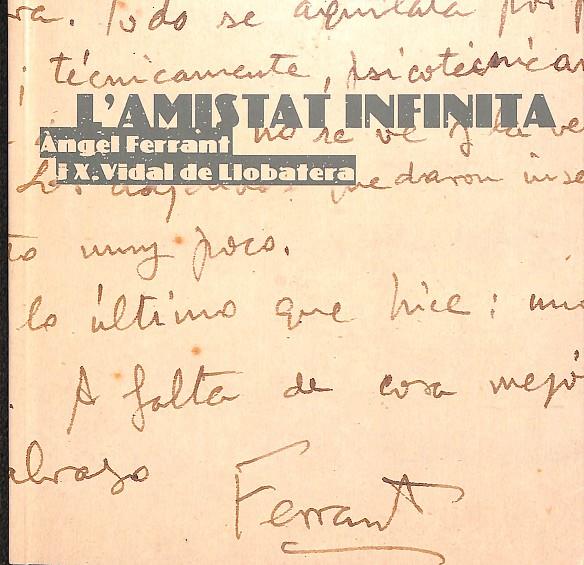 ra. Todo se aquilata por
técnicamente, psicotécnicam
L'AMISTAT INFINITA
no se ve y la ve
Àngel Ferrant
i X. Vidal de Llobatera
Los quedaron inse
to muy poco.
lo último que hice: un
A falta de cosa mejo
abrazo
Ferrant